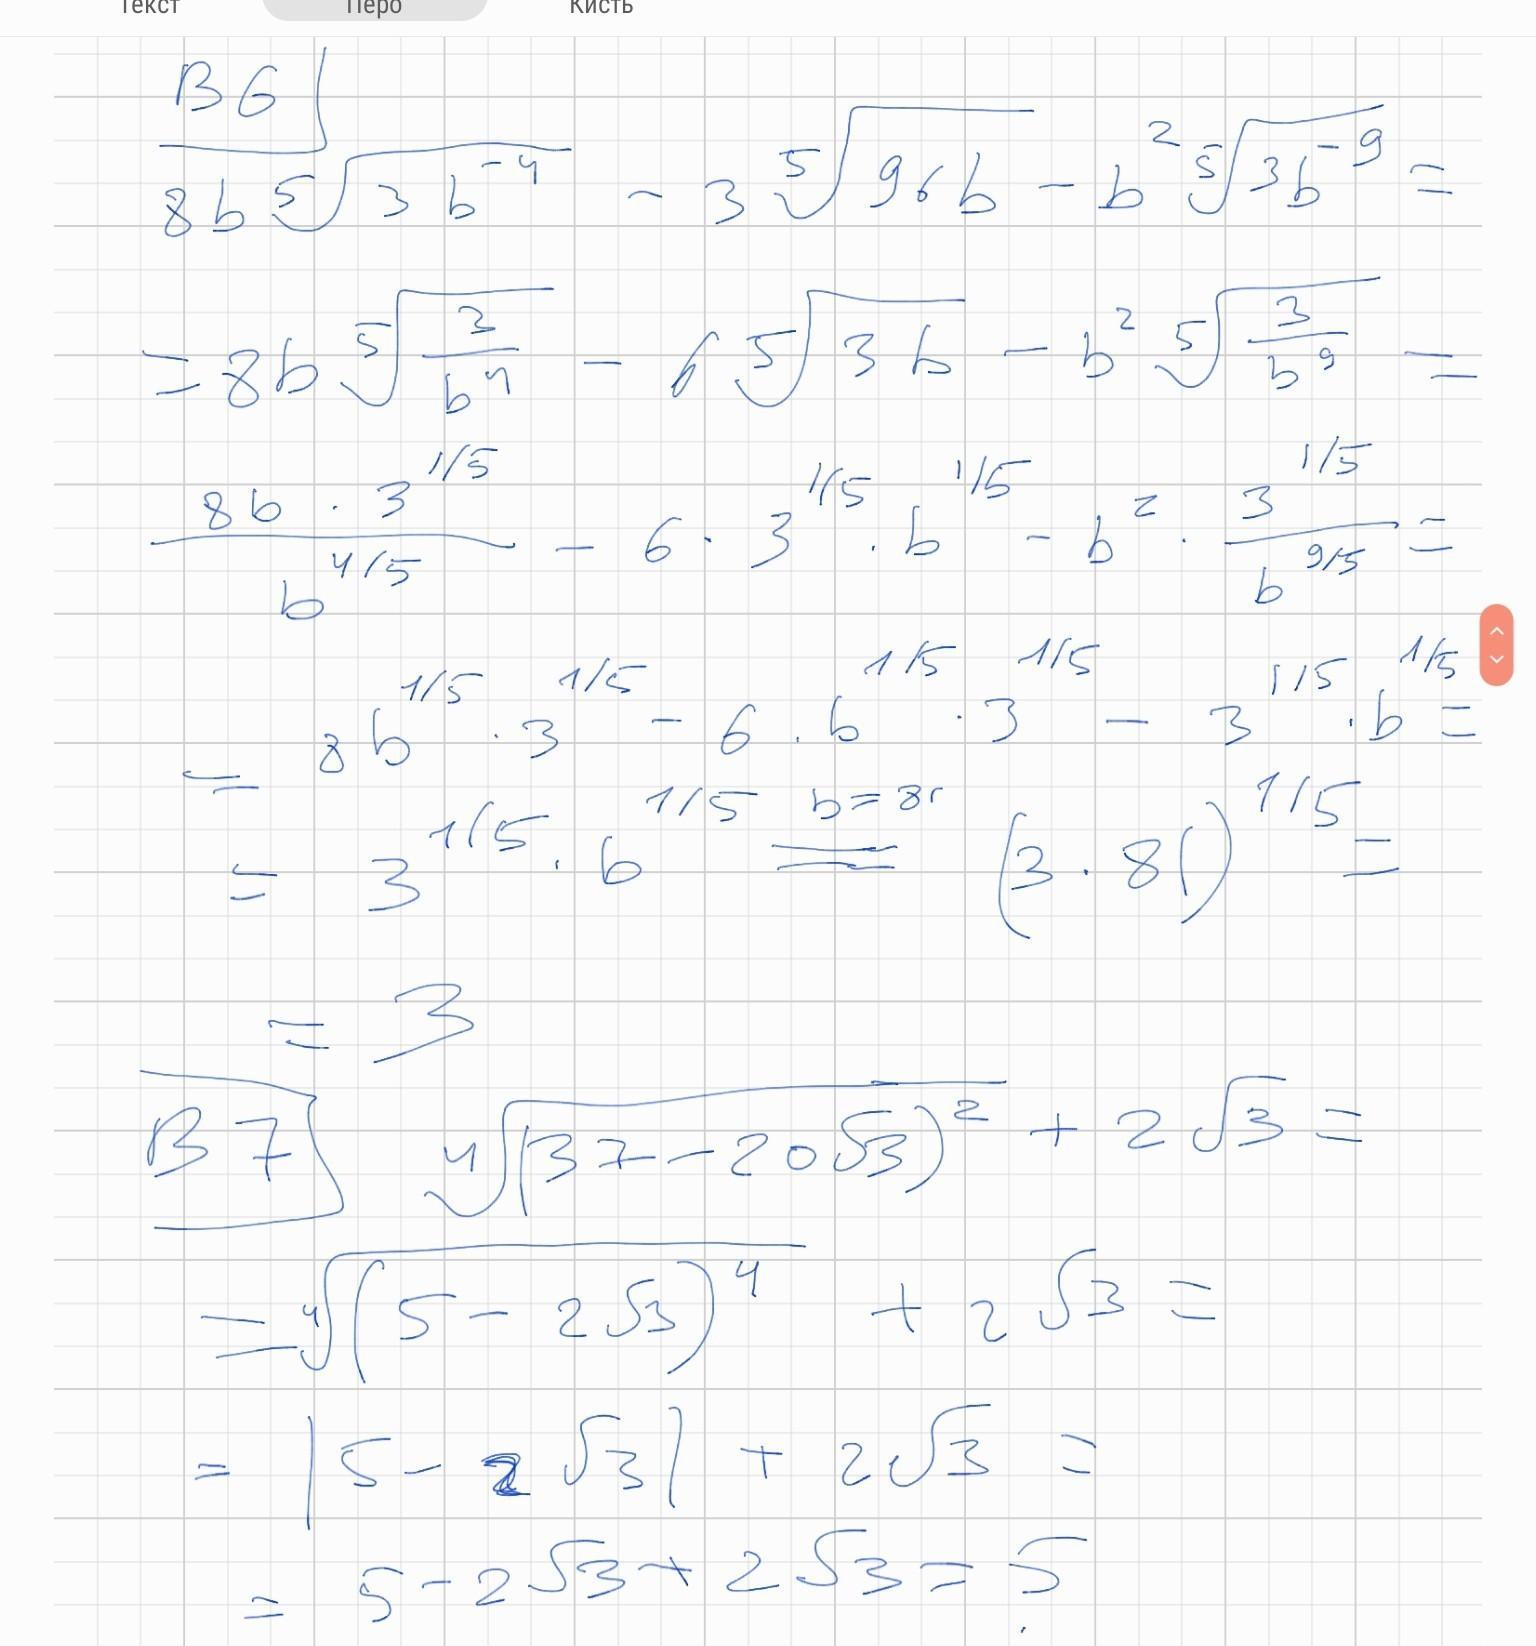 Текст Перо Кисть
B6
8b ⁵√(3b⁻⁴) - 3 ⁵√(96b) - b² ⁵√(3b⁻⁹) =
= 8b ⁵√(3/b⁴) - 6 ⁵√(3b) - b² ⁵√(3/b⁹) =
(8b · 3^(1/5))/(b^(4/5)) - 6 · 3^(1/5) · b^(1/5) - b² · 3^(1/5)/b^(9/5) =
= 8b^(1/5) · 3^(1/5) - 6 · b^(1/5) · 3^(1/5) - 3^(1/5) · b^(1/5) =
= 3^(1/5) · b^(1/5) = b=81 (3 · 81)^(1/5) =
= 3
B7 ⁴√((37 - 20√3)²) + 2√3 =
= ⁴√((5 - 2√3)⁴) + 2√3 =
= |5 - 2√3| + 2√3 =
= 5 - 2√3 + 2√3 = 5